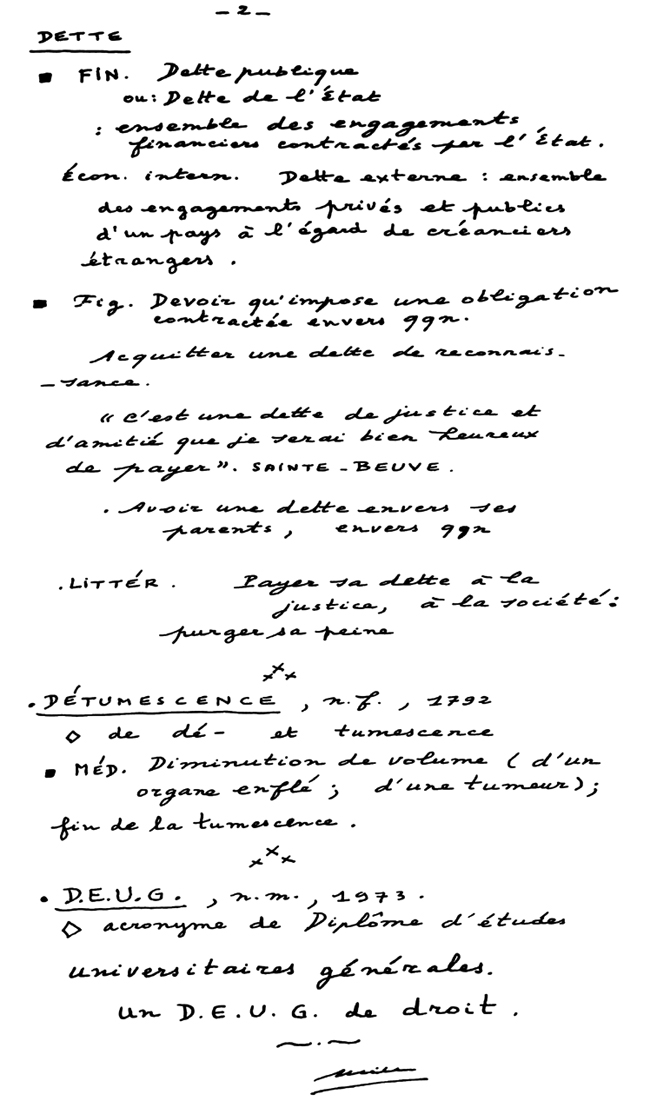 – 2 –
DETTE
▪ FIN. Dette publique
ou: Dette de l'État
: ensemble des engagements
financiers contractés par l'État.
Écon. intern. Dette externe : ensemble
des engagements privés et publics
d'un pays à l'égard de créanciers
étrangers.
▪ Fig. Devoir qu'impose une obligation
contractée envers qqn.
Acquitter une dette de reconnais-
-sance.
« C'est une dette de justice et
d'amitié que je serai bien heureux
de payer ». SAINTE-BEUVE.
. Avoir une dette envers ses
parents, envers qqn
. LITTÉR. Payer sa dette à la
justice, à la société :
purger sa peine
xxx
. DÉTUMESCENCE, n.f., 1792
◊ de dé- et tumescence
▪ MÉD. Diminution de volume (d'un
organe enflé ; d'une tumeur) ;
fin de la tumescence.
xxx
• D.E.U.G., n.m., 1973.
◊ acronyme de Diplôme d'études
universitaires générales.
un D.E.U.G. de droit.
~.~